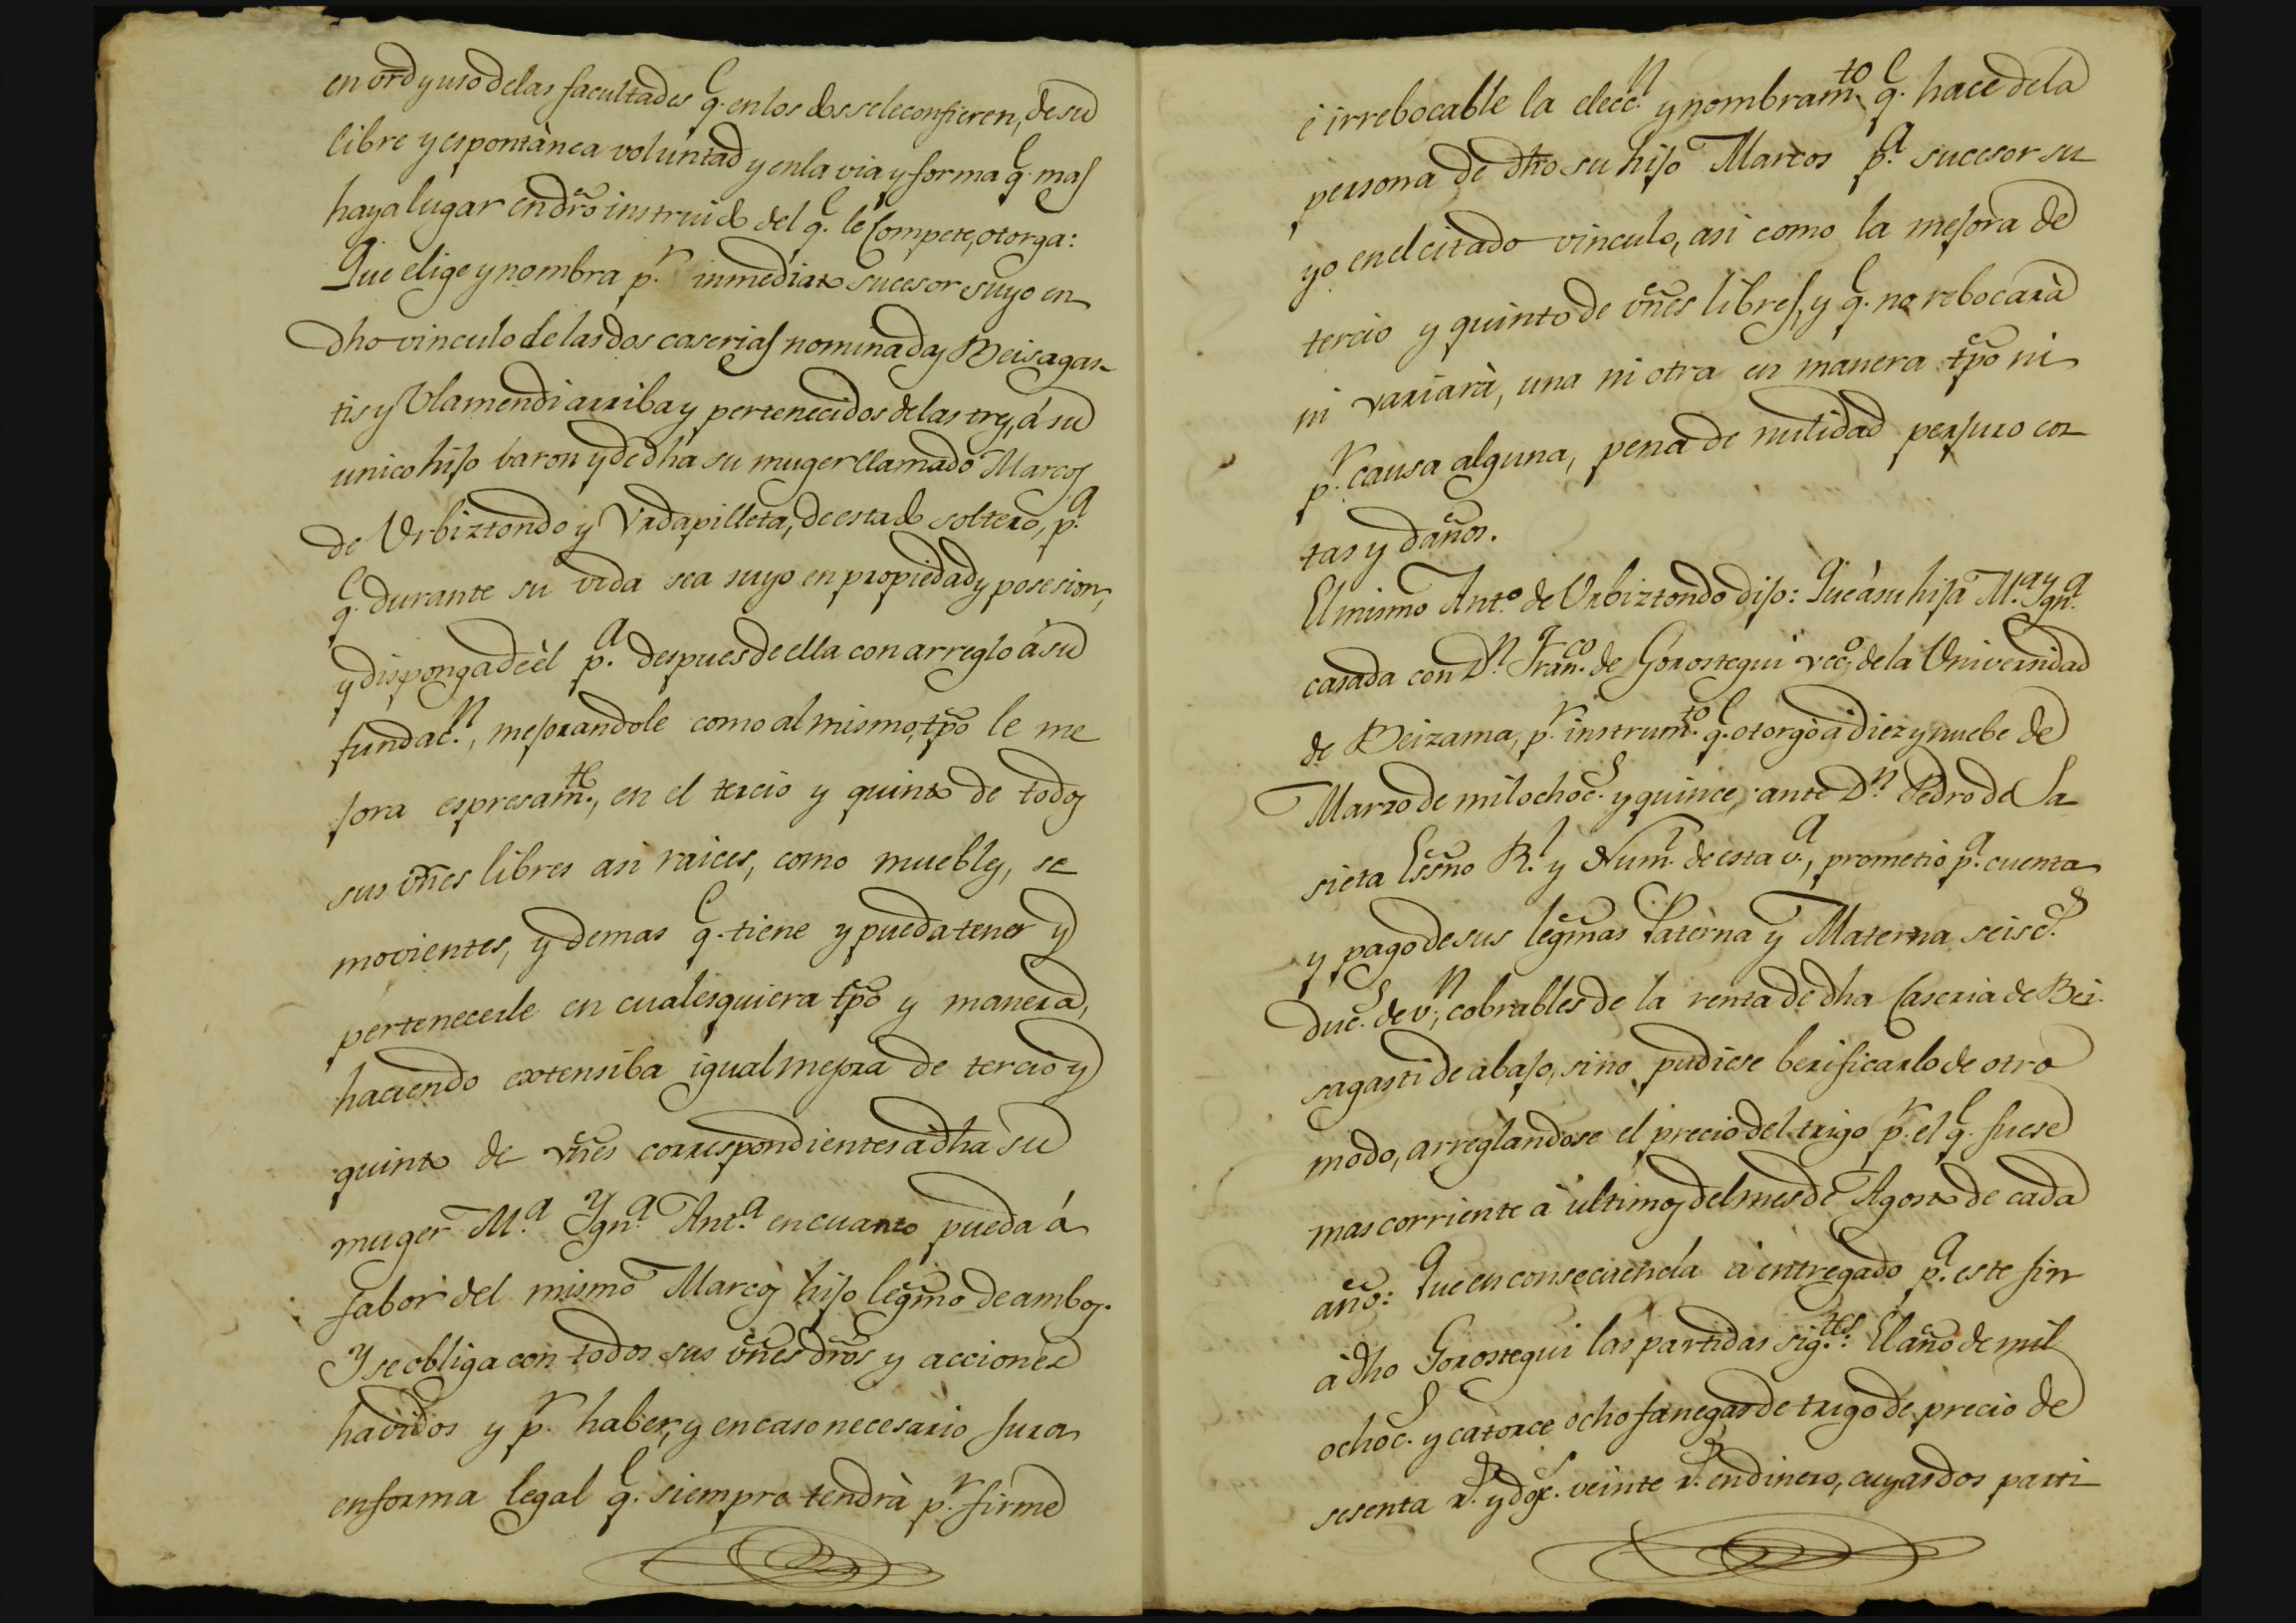 en ôrd y uso de las facultades q.e en los dos se le confieren, de su
libre y espontànea voluntad y en la via y forma q.e mas
haya lugar en dr̃o instruido del q.e le Compete, otorga:
Que elige y nombra p.r inmediato sucesor suyo en
dho vinculo de las dos caserias nominadas Beisagas-
tis y Ulamendi arriba y pertenecidos de las tres, á su
unico hijo baron y de dha su muger llamado Marcos
de Urbiztondo y Urdapilleta, de estado soltero, p.a
q.e durante su vida sea suyo en propiedad y posesion,
y disponga de èl p.a despues de ella con arreglo á su
fundac.n, mejorandole como al mismo tpõ le me
jora espresam.te, en el tercio y quinto de todos
sus vñes libres asi raices, como muebles, se
movientes, y demas q.e tiene y pueda tener y
pertenecerle en cualesquiera tpõ y manera,
haciendo extensiba igual mejora de tercio y
quinto de vñes correspondientes a dha su
muger M.a Ygn.a Ant.a en cuanto pueda á
fabor del mismo Marcos hijo legm̃o de ambos.
Y se obliga con todos sus vñes dr̃os y acciones
havidos y p.r haber, y en caso necesario jura
en forma legal q.e siempre tendrà p.r firme
è irrebocable la elecc.n y nombram.to q.e hace de la
persona de dho su hijo Marcos p.a sucesor su
yo en el citado vinculo, asi como la mejora de
tercio y quinto de vñes libres, y q.e no rebocarà
ni variarà, una ni otra en manera tpõ ni
p.r causa alguna, pena de nulidad perjuro cos
tas y daños.
El mismo Ant.o de Urbiztondo dijo: Que à su hija M.a Ygn.a
casada con D.n Fran.co de Gorostegui vec.o de la Universidad
de Beizama, p.r instrum.to q.e otorgò à diez y nuebe de
Marzo de mil ochoc.s y quince, ante D.n Pedro de La
sieta Essño R.l y Num.l de esta v.a, prometio p.a cuenta
y pago de sus legm̃as Paterna y Materna seisc.s
duc.s de v.n, cobrables de la renta de dha Caseria de Bei-
sagasti de abajo, sino pudiese berificarlo de otro
modo, arreglandose el precio del trigo p.r el q.e fuese
mas corriente à ultimos del mes de Agosto de cada
año: Que en consecuencia à entregado p.a este fin
à dho Gorostegui las partidas sig.tes: El año de mil
ochoc.s y catorce ocho fanegas de trigo de precio de
sesenta r.s y dosc.s veinte r.s en dinero, cuyas dos parti